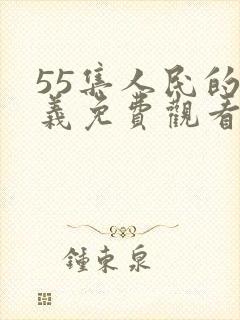 55集人民的
義免費觀看
鍾東泉